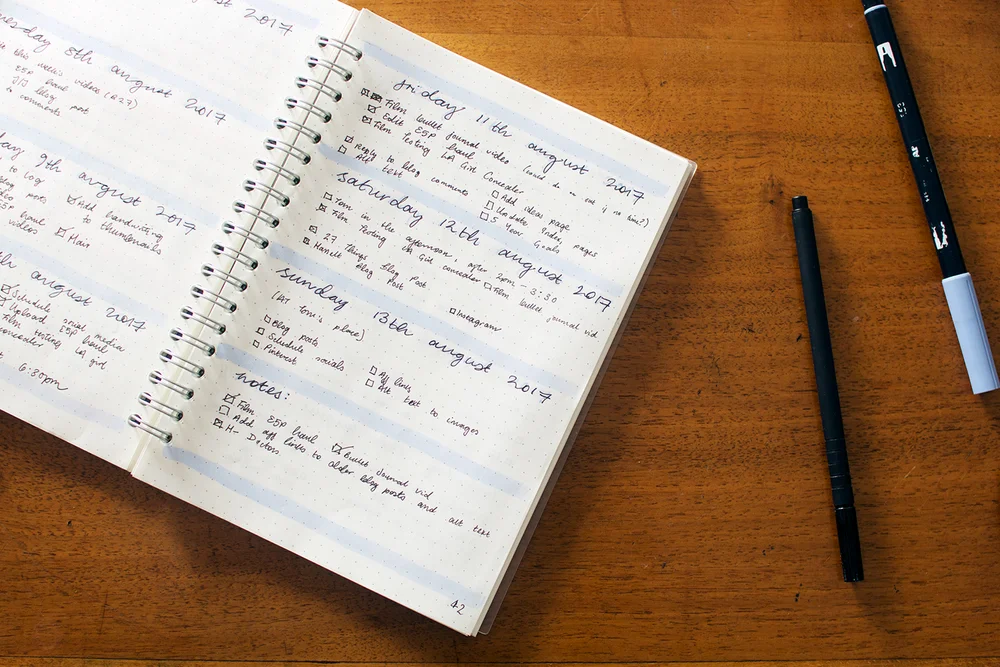 august 2017
8th august 2017
this week's videos (a 27)
ESP haul
blog post
to comments
9th august 2017
to log
Add handwriting
to thumbnails
ESP haul
videos
Hair
august 2017
Schedule social media
Upload ESP haul
Film testing LA girl
concealer
6:30pm
friday 11th august 2017
Film bullet journal video (could do cut if no time?)
Edit ESP haul
Film testing LA Girl Concealer
Reply to blog comments
Alt text
Add ideas page
Update index, pages
5 Year Goals
saturday 12th august 2017
Tom in the afternoon, after 2pm - 3:30
Film testing LA Girl concealer
Film bullet journal vid
27 things Blog Post
Blog Post
Instagram
sunday 13th august 2017
(AT Tom's place)
Blog posts
Schedule socials
Pinterest
Aff links
Alt text to images
notes:
Film ESP haul
Bullet journal vid
Add aff links to older blog posts and alt text
H- Doctors
42